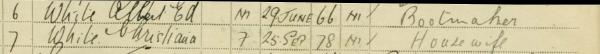 6 White Albert Ed M 29 JUNE 66 M Bootmaker
7 White Christiana F 25 SEP 78 M Housewife